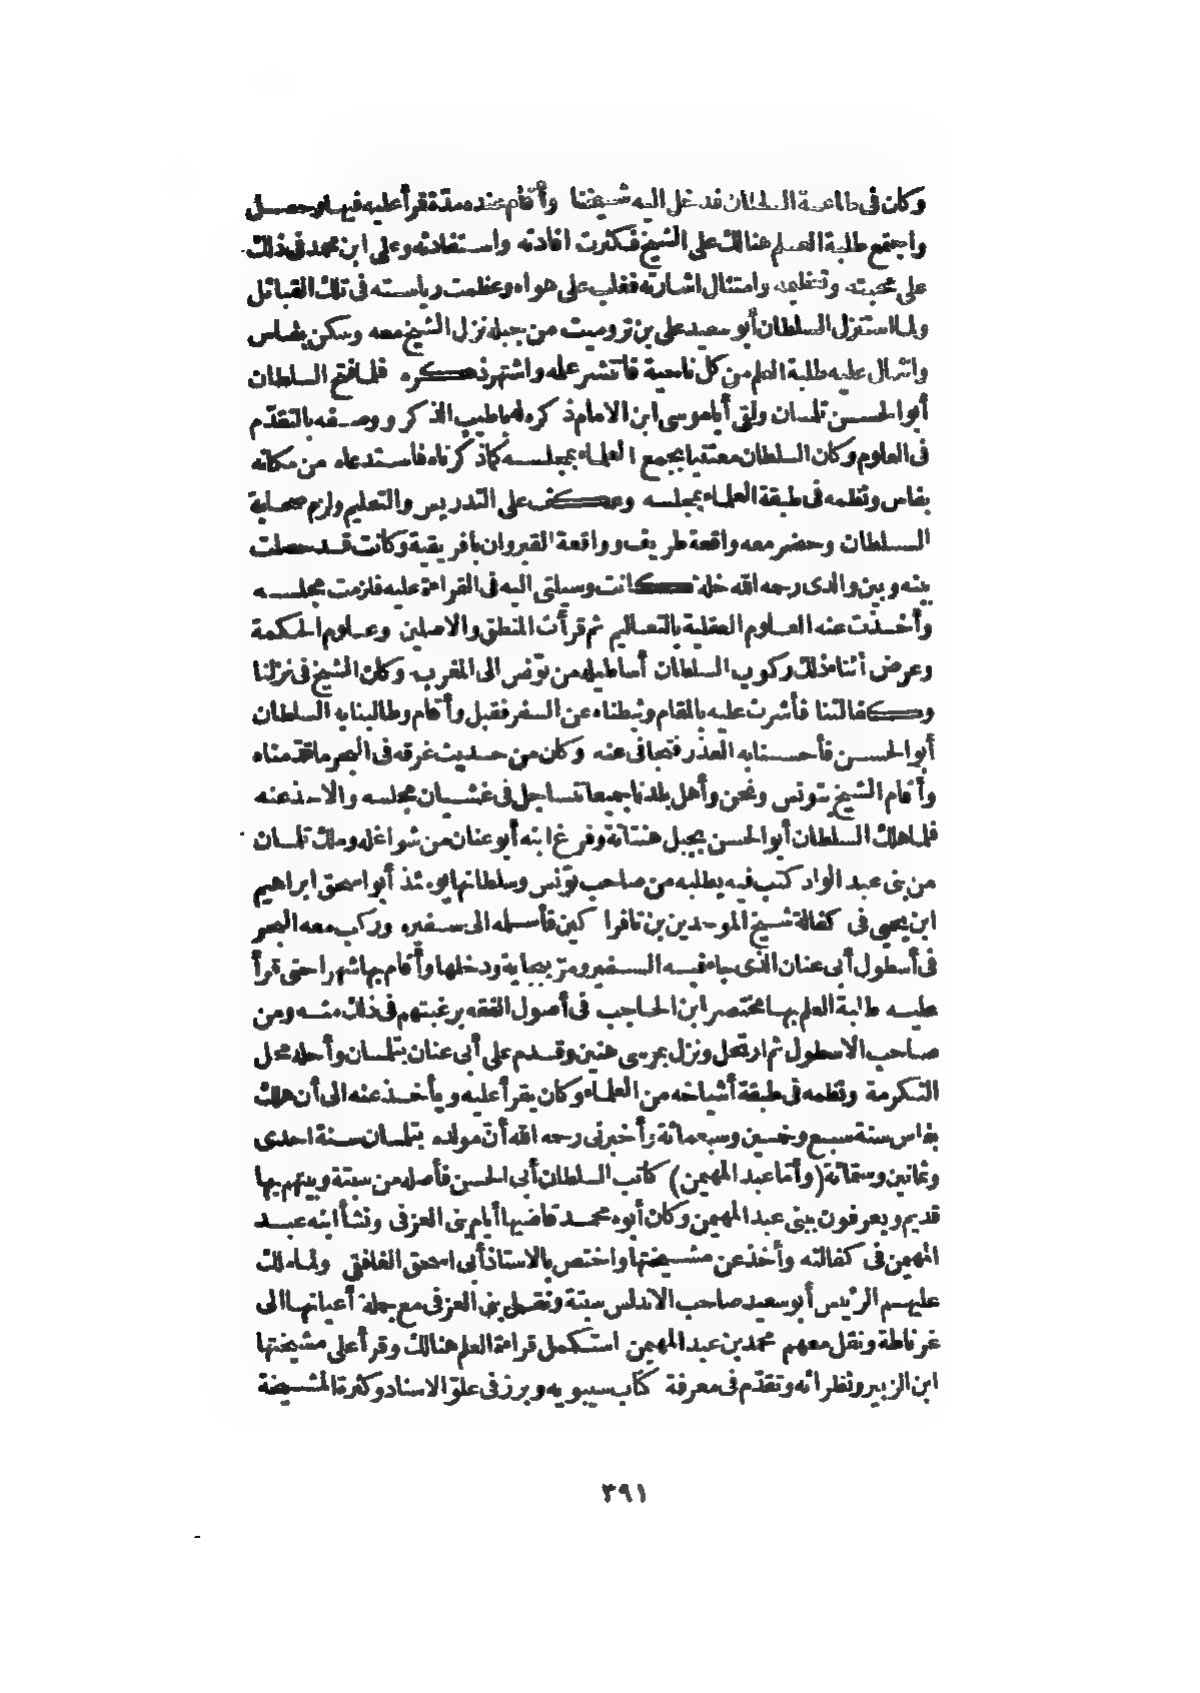 وكان فى طاعة السلطان فدخل اليه شيخنا وأقام عنده مدّة قرأ عليه فيها وحصل
واجتمع طلبة العلم هنالك على الشيخ فكثرت افادته واستفادته وعلى ابن محمد فى ذلك
على محبته وتعظيمه وامتثال اشارته فغلب على هواه وعظمت رياسته فى تلك القبائل
ولما استنزل السلطان أبو سعيد على بن تروميت من جبله نزل الشيخ معه وسكن بفاس
وانثال عليه طلبة العلم من كل ناحية فانتشر علمه واشتهر ذكره فلما فتح السلطان
أبو الحسن تلمسان ولقى أبا موسى ابن الامام ذكره له باطيب الذكر ووصفه بالتقدّم
فى العلوم وكان السلطان معتنيا بجمع العلماء بمجلسه كما ذكرناه فاستدعاه من مكانه
بفاس ونظمه فى طبقة العلماء بمجلسه وعكف على التدريس والتعليم ولزم صحابة
السلطان وحضر معه واقعة طريف وواقعة القيروان بافريقية وكانت قد حصلت
بينه وبين والدى رحمه الله خلة كانت وسيلتى اليه فى القراءة عليه فلزمت مجلسه
وأخذت عنه العلوم العقلية بالتعاليم ثم قرأت المنطق والاصلين وعلوم الحكمة
وعرض أثناء ذلك ركوب السلطان أساطيله من تونس الى المغرب وكان الشيخ فى نزلنا
وكفالتنا فأشرت عليه بالمقام وثبطناه عن السفر فقبل وأقام وطالبنا به السلطان
أبو الحسن فأحسنا به العذر فتجافى عنه وكان من حديث غرقه فى البحر ما قدّمناه
وأقام الشيخ بتونس ونحن وأهل بلدنا جميعا نتساجل فى غشيان مجلسه والاخذ عنه
فلما هلك السلطان أبو الحسن بجبل هنتاتة وفرغ ابنه أبو عنان من شواغله وملك تلمسان
من بنى عبد الواد كتب فيه يطلبه من صاحب تونس وسلطانها يومئذ أبو اسحق ابراهيم
ابن يحيى فى كفالة شيخ الموحدين بن تافراكين فأسلمه الى سفيره وركب معه البحر
فى أسطول أبى عنان الذى جاء فيه السفير ومرّ ببجاية ودخلها وأقام بها شهرا حتى قرأ
عليه طلبة العلم بها مختصر ابن الحاجب فى أصول الفقه برغبتهم فى ذلك منه ومن
صاحب الاسطول ثم ارتحل ونزل بمرسى هنين وقدم على أبى عنان بتلمسان وأحله محل
التكرمة ونظمه فى طبقة أشياخه من العلماء وكان يقرأ عليه ويأخذ عنه الى أن هلك
بفاس سنة سبع وخمسين وسبعمائة وأخبرنى رحمه الله أنّ مولده بتلمسان سنة احدى
وثمانين وستمائة (وأما عبد المهيمن) كاتب السلطان أبى الحسن فأصله من سبتة وبيتهم بها
قديم ويعرفون ببنى عبد المهيمن وكان أبوه محمد قاضيها أيام بنى العزفى ونشأ ابنه عبد
المهيمن فى كفالته وأخذ عن مشيختها واختص بالاستاذ أبى اسحق الغافقى ولما ملك
عليهم الرئيس أبو سعيد صاحب الاندلس سبتة ونقل بنى العزفى مع جملة أعيانها الى
غرناطة ونقل معهم محمد بن عبد المهيمن استكمل قراءة العلم هنالك وقرأ على مشيختها
ابن الزبير ونظرائه وتقدّم فى معرفة كتاب سيبويه وبرز فى علوّ الاسناد وكثرة المشيخة
٣٩١